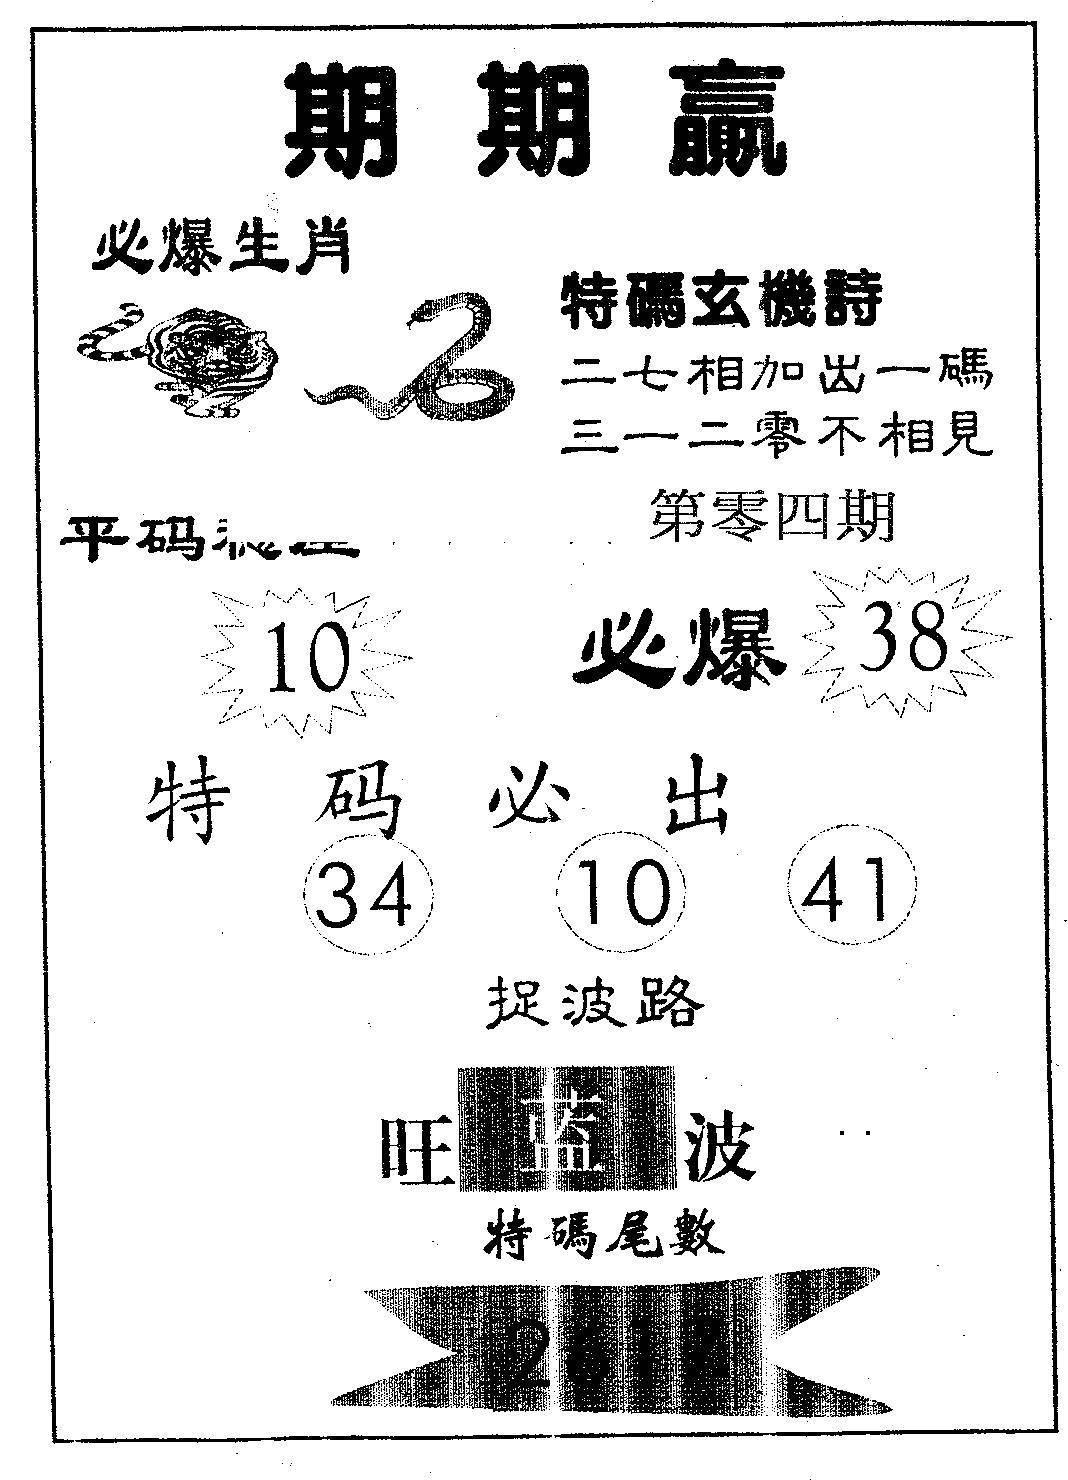 期期贏
必爆生肖
特碼玄機詩
二七相加出一碼
三一二零不相見
第零四期
平码
10
必爆 38
特码必出
34 10 41
捉波路
旺藍波
特碼尾數
261